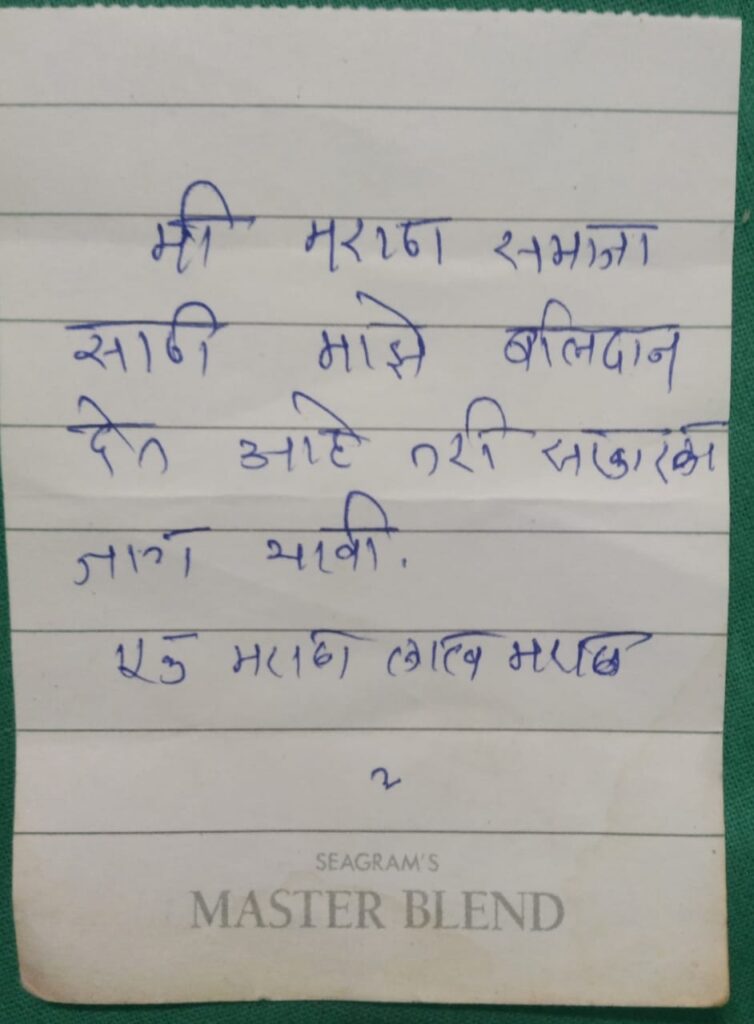 मी मराठा समाजा
साठी माझे बलिदान
देत आहे तरी सरकारला
जाग यावी.
एक मराठा लाख मराठा
२
SEAGRAM'S
MASTER BLEND